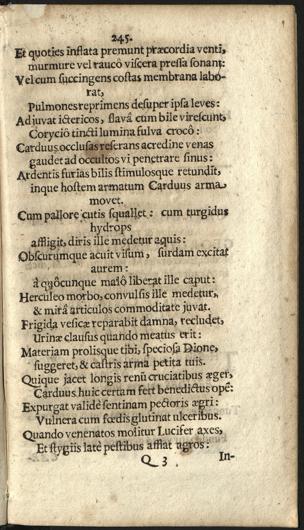 245.
Et quoties inflata premunt præcordia venti,
murmure vel raucò viscera pressa sonant:
Vel cum succingens costas membrana labo-
rat,
Pulmones reprimens desuper ipsa leves:
Adjuvat ictericos, flavâ cum bile virescunt,
Coryciô tincti lumina fulva crocô:
Carduus occlusas reserans acredine venas
gaudet ad occultos vi penetrare sinus:
Ardentis furias bilis stimulosque retundit,
inque hostem armatum Carduus arma
movet.
Cum pallore cutis squallet: cum turgidus
hydrops
affligit, diris ille medetur aquis:
Obscurumque acuit visum, surdam excitat
aurem:
â quôcunque malô liberat ille caput:
Herculeo morbo, convulsis ille medetur,
& mirâ articulos commoditate juvat.
Frigida vesicæ reparabit damna, recludet,
Urinæ clausus quando meatus erit:
Materiam prolisque tibi, speciosa Dione,
suggeret, & castris arma petita tuis.
Quique jacet longis renû cruciatibus æger,
Carduus huic certam fert benedictus opê:
Expurgat validè sentinam pectoris ægri:
Vulnera cum fœdis glutinat ulceribus.
Quando venenatos molitur Lucifer axes,
Et stygiis latè pestibus afflat agros:
Q 3 In-